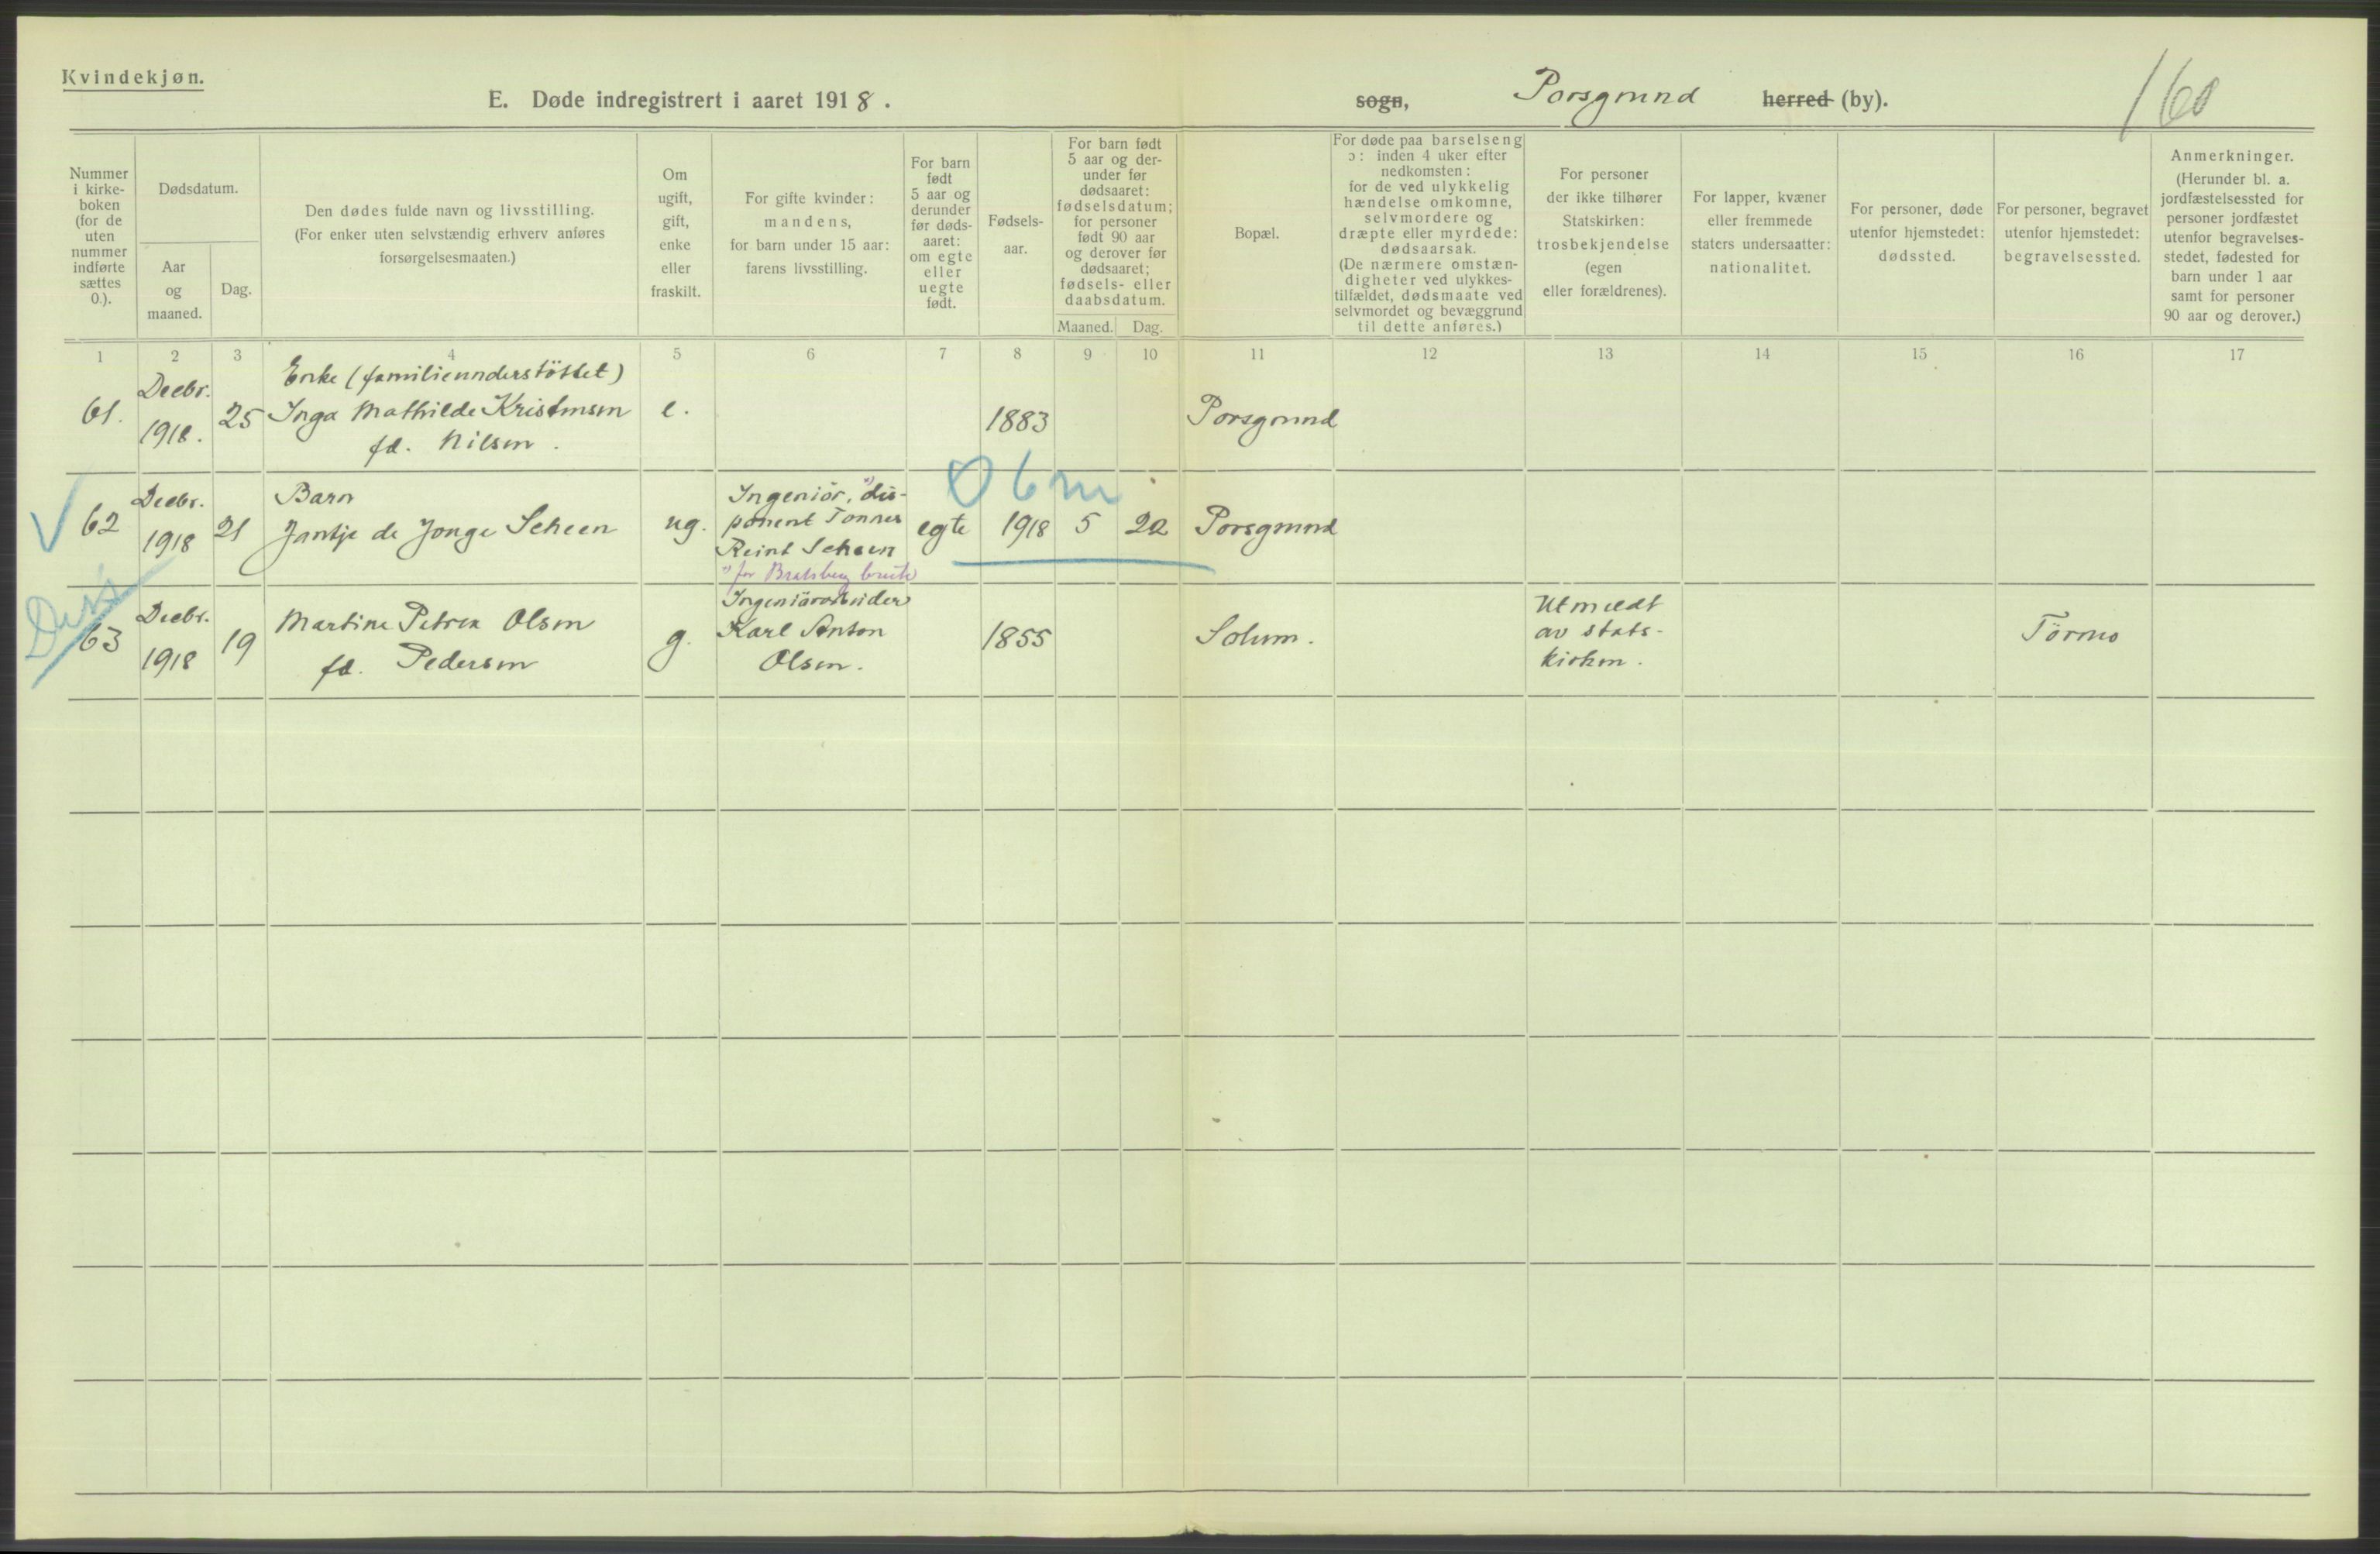 Kvindekjøn.
E. Døde indregistrert i aaret 1918.
sogn, Porsgrund herred (by).
160
Nummer i kirke-boken (for de uten nummer indførte sættes 0.).
Dødsdatum.
Aar og maaned.
Dag.
Den dødes fulde navn og livsstilling.
(For enker uten selvstændig erhverv anføres
forsørgelsesmaaten.)
Om
ugift,
gift,
enke
eller
fraskilt.
For gifte kvinder:
mandens,
for barn under 15 aar:
farens livsstilling.
For barn
født
5 aar og
derunder
før døds-
aaret:
om egte
eller
uegte
født.
Fødsels-
aar.
For barn født
5 aar og der-
under før
dødsaaret:
fødselsdatum;
for personer
født 90 aar
og derover før
dødsaaret;
fødsels- eller
daabsdatum.
Maaned. Dag.
Bopæl.
For døde paa barselseng
ɔ: inden 4 uker efter
nedkomsten:
for de ved ulykkelig
hændelse omkomne,
selvmordere og
dræpte eller myrdede:
dødsaarsak.
(De nærmere omstæn-
digheter ved ulykkes-
tilfældet, dødsmaate ved
selvmordet og bevæggrund
til dette anføres.)
For personer
der ikke tilhører
Statskirken:
trosbekjendelse
(egen
eller forældrenes).
For lapper, kvæner
eller fremmede
staters undersaatter:
nationalitet.
For personer, døde
utenfor hjemstedet:
dødssted.
For personer, begravet
utenfor hjemstedet:
begravelsessted.
Anmerkninger.
(Herunder bl. a.
jordfæstelsessted for
personer jordfæstet
utenfor begravelses-
stedet, fødested for
barn under 1 aar
samt for personer
90 aar og derover.)
1 2 3 4 5 6 7 8 9 10 11 12 13 14 15 16 17
61.
Decbr.
1918.
25
Enke (familieunderstöttet)
Inga Mathilde Kristensen
fd. Nilsen.
e.
1883
Porsgrund
62
Decbr.
1918
21
Barn
Jantje de Jonge Scheen
ug.
Ingeniör, ") dis-
ponent Tonnes
Reint Scheen
") for Bratsberg bruk
egte
1918
5
22
0 6 m
Porsgrund
63
Decbr.
1918
19
Martine Petrea Olsen
fd. Pedersen
g.
Karl Anton
Olsen.
1855
Solum.
Utmeldt
av stats-
kirken.